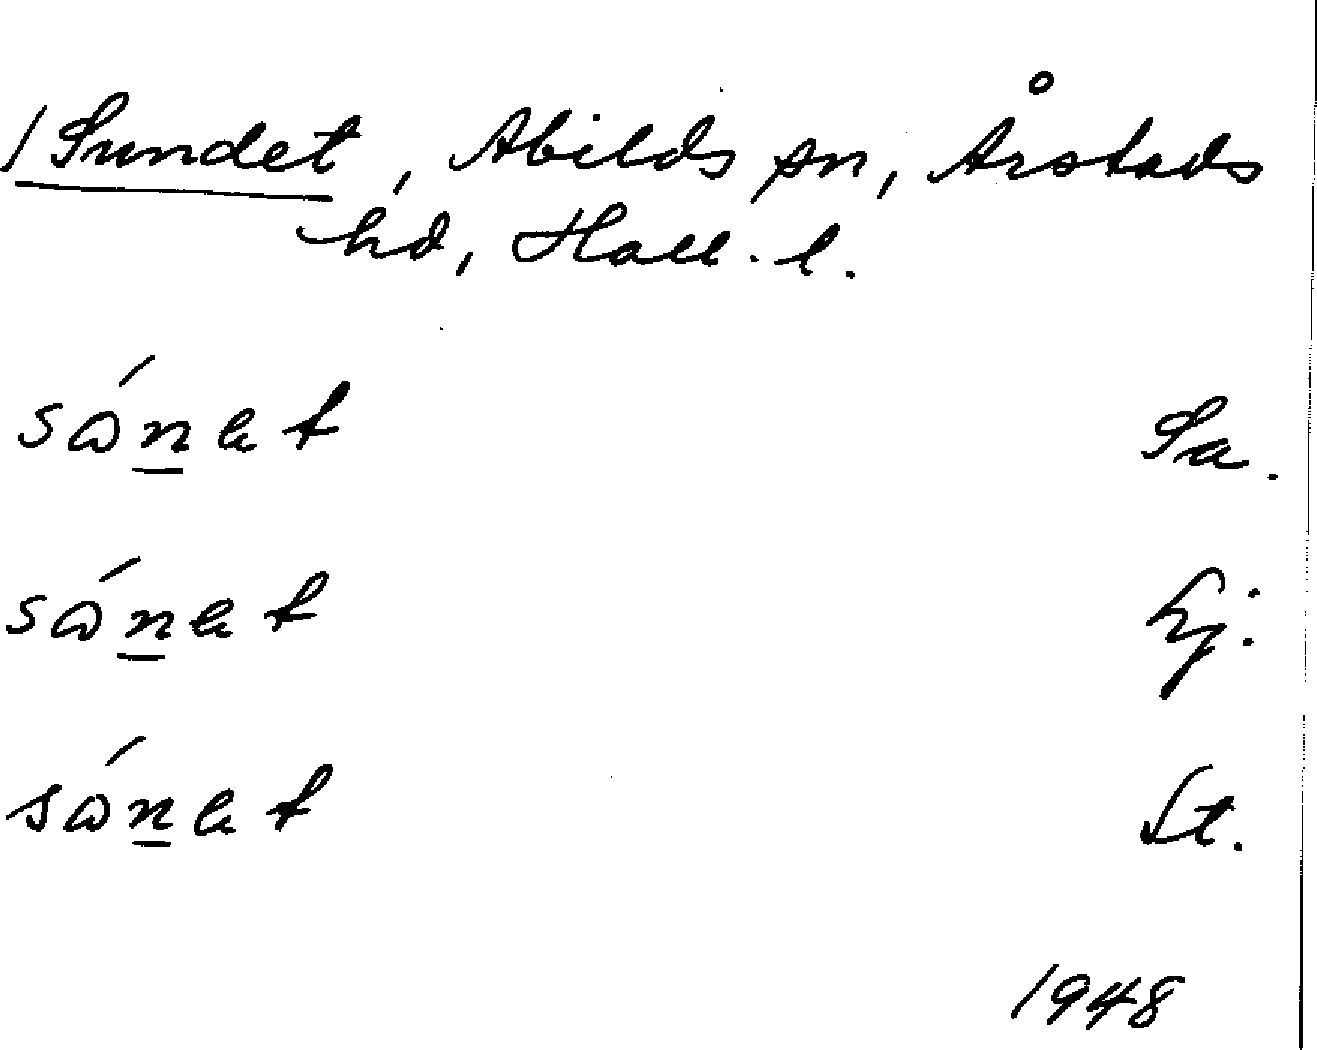 /Sundet, Abilds sn, Årstads
hd, Hall. l.
sɷ́n̲et Sa.
sɷ́n̲et Lj:
sɷ́n̲et St.
1948